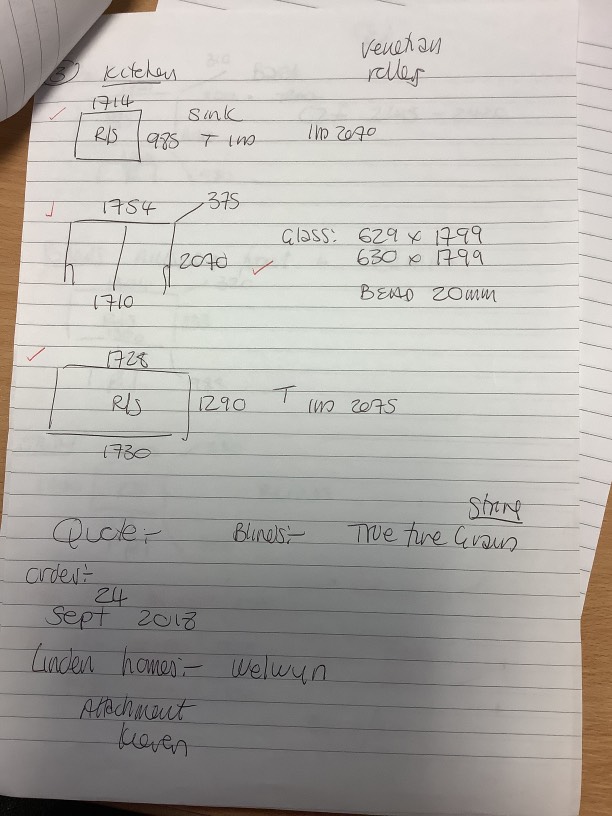 3 Kitchen
Venetian
roller
1714
Sink
R/S 985 T IND IND 2070
1754 375
Glass: 629 x 1799
2070 630 x 1799
1710
BEAD 20mm
1728
R/S 1290 T IND 2075
1730
Quote:- Blinds:- True Fine
Order:-
24
Sept 2018
Linden homes:- Welwyn
Attachment